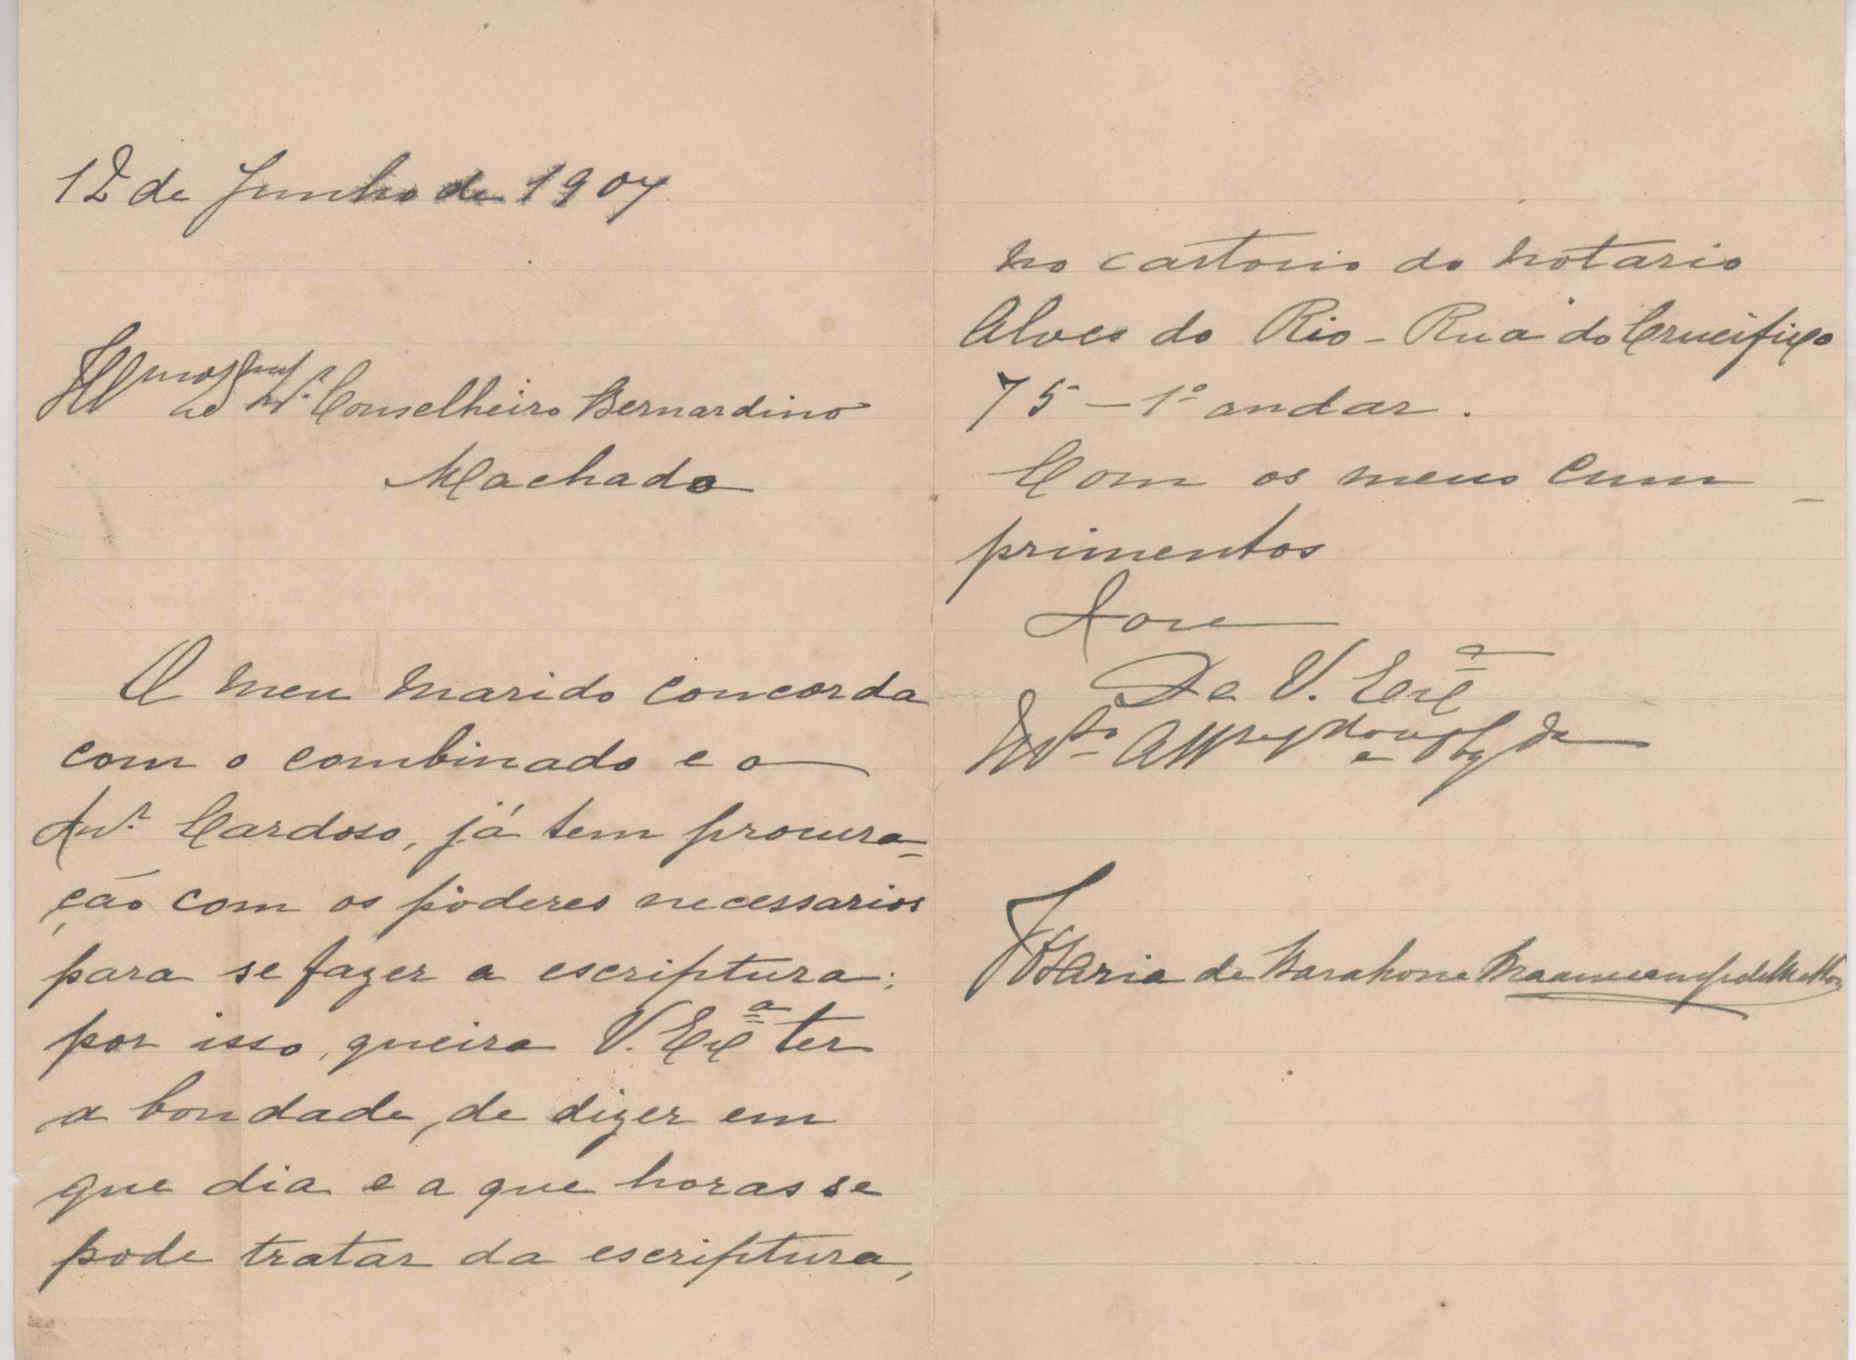 12 de Junho de 1907
Illmo e Exmo Snr. Conselheiro Bernardino
Machado
O meu marido concorda
com o combinado e o
Snr. Cardoso, já tem procura=
ção com os poderes necessarios
para se fazer a escriptura;
por isso, queira V. Exª ter
a bondade, de dizer em
que dia e a que horas se
pode tratar da escriptura,
no cartorio do notario
Alves do Rio - Rua do Crucifixo
75 - 1º andar.
Com os meus cum-
primentos
Sou
De V. Exª
Mtº Attª
Maria de Barahona